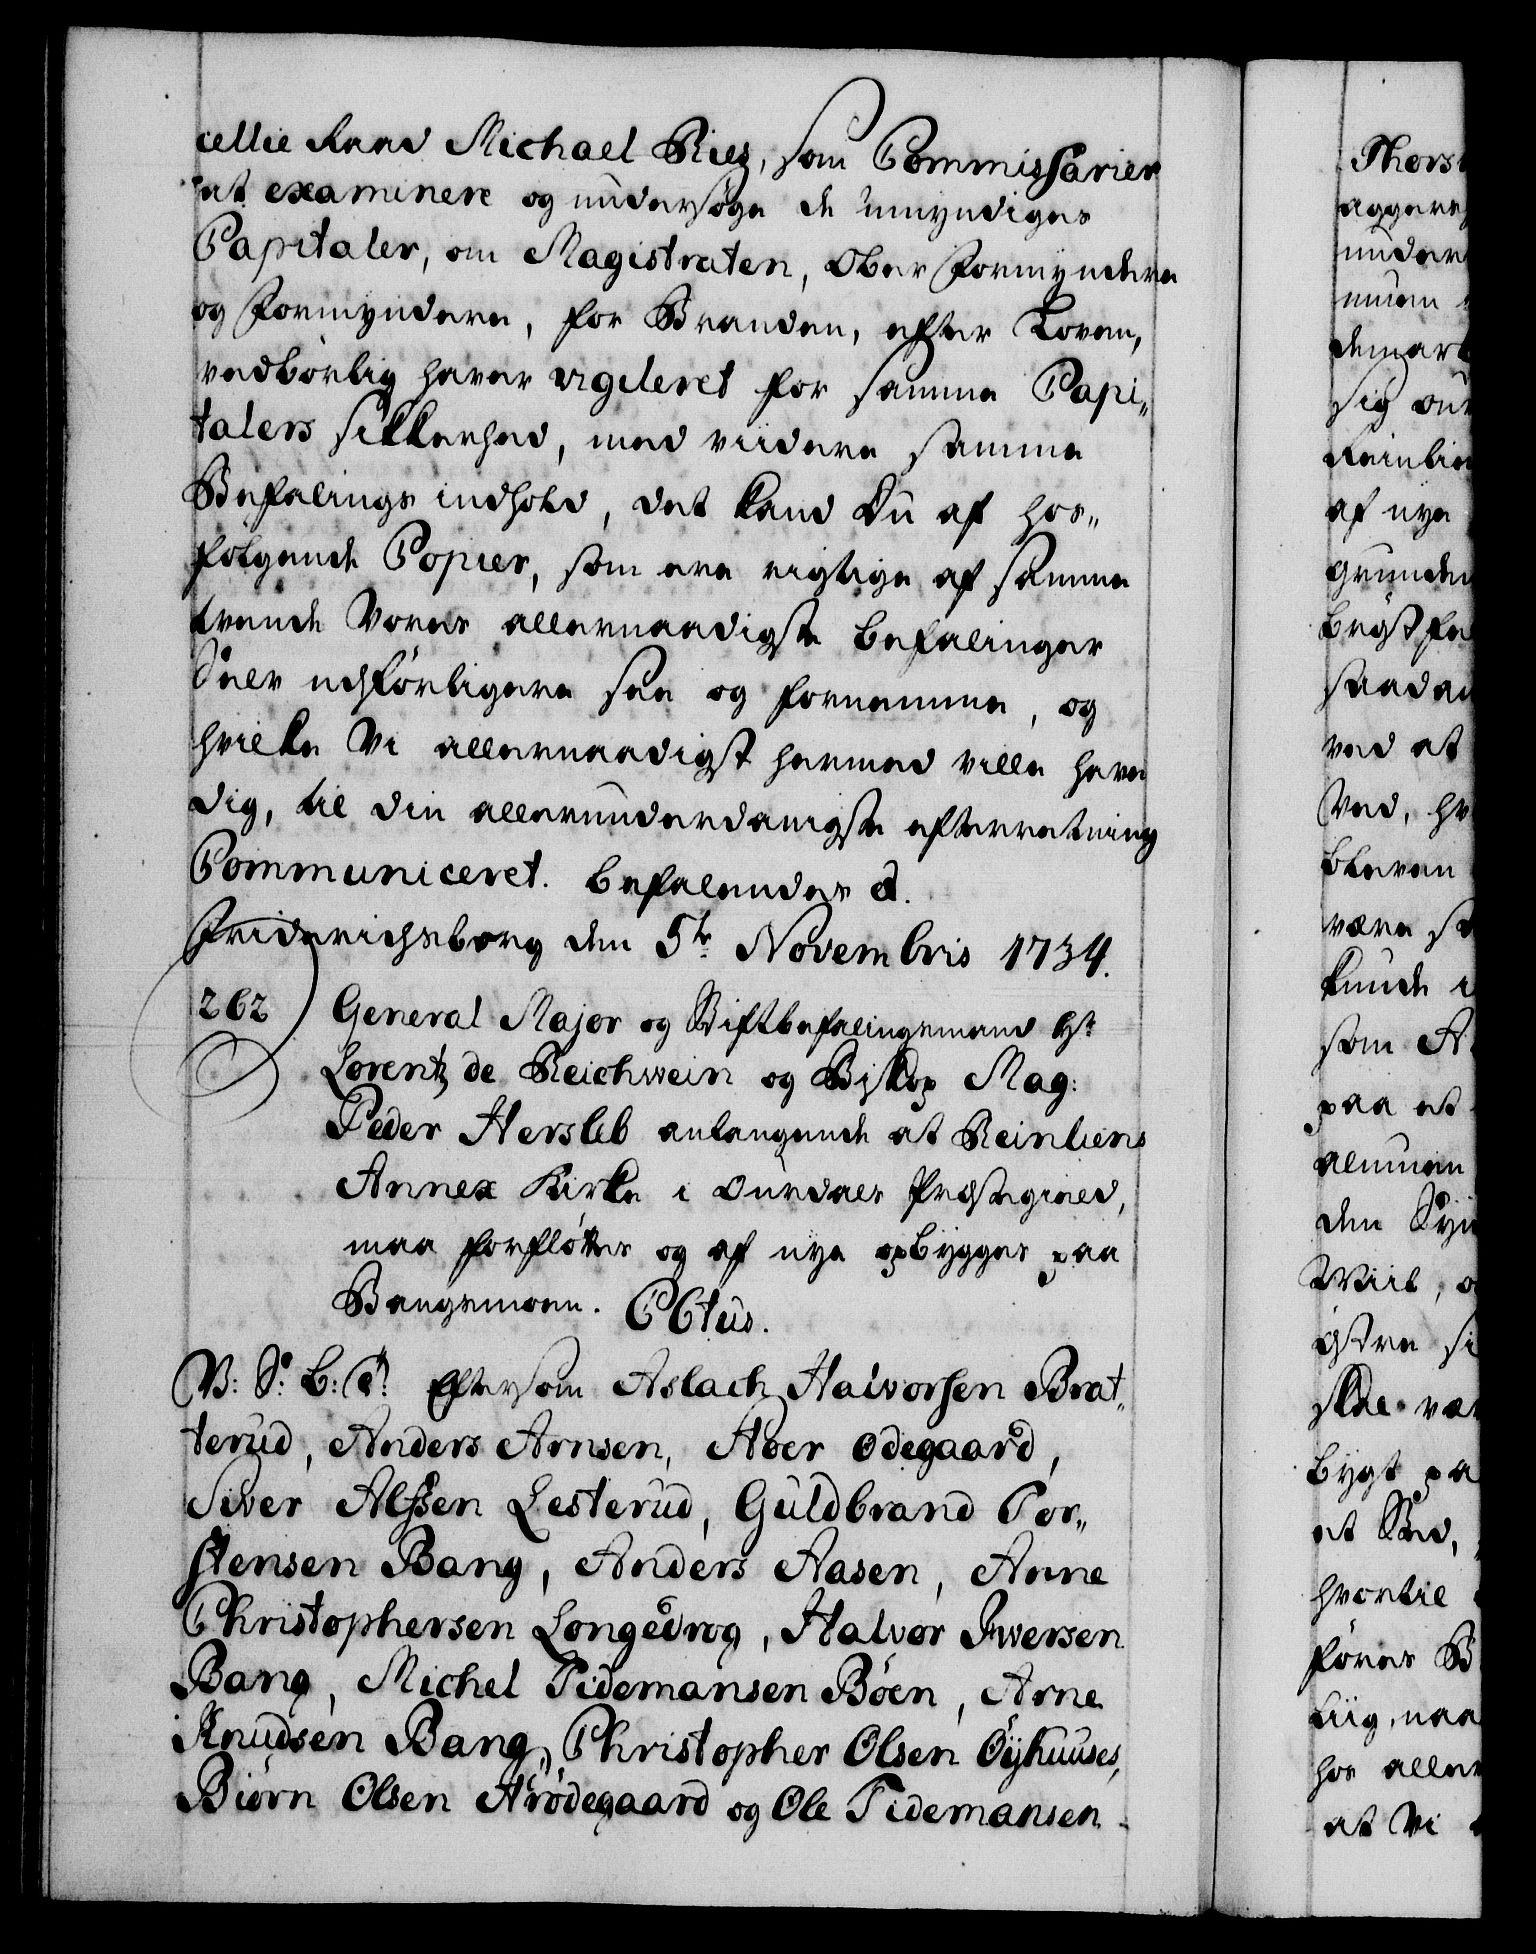 cellie Raad Michael Ries, som Commissarier
at examinere og undersøge de umyndiges
Capitaler, om Magistraten, Ober Formyndere
og Formyndere, for Branden, efter Loven,
vedbørlig haver vigileret for samme Capi„
talers Sikkerhed, med viidere samme
Befalings indhold, det kand Du af hos„
følgende Copier, som ere rigtige af samme
trende Vores allernaadigste befalinger
Selv udførligere see og fornemme, og
hvilke Vi allernaadigst hermed ville have
dig, til din allerunderdanigste efterretning
Communiceret. befalendes d.
Friderichsborg den 5te Novembris 1734.
262) General Major og Stiftbefalingsmand Hr
Lorentz de Reichwein og Biskop Mag:
Peder Hersleb anlangende at Reinliens
Annex Kirke i Ourdals Præstegield,
maa forfløttes og af nye opbygges paa
Bangsmoen. CCtus.
V: S: B: T: Eftersom Aslach Halvorsen Brat„
terud, Anders Arnsen, Aoer Odegaard,
Siver Alfsen Lesterud, Guldbrand Tor„
stensen Bang, Anders Aasen, Arne
Christophersen Longedrog, Halvor Iwersen
Bang, Michel Tidemansen Böen, Arne
Knudsen Bang, Christopher Olsen Öyhuuses,
Biörn Olsen Arödegaard og Ole Tidemansen
Thors
aggere
under
muen
demark
sig our
Reinlie
af nye
grunden
brøstfe
saadan
ved at
Ved, hv
bleven
være s
kunde
som A
paa et
almuen
den Syn
Wiil, o
østre si
skal væ
bygt pa
et Sted,
hvortil
føres B
Liig, naa
hos aller
at Vi